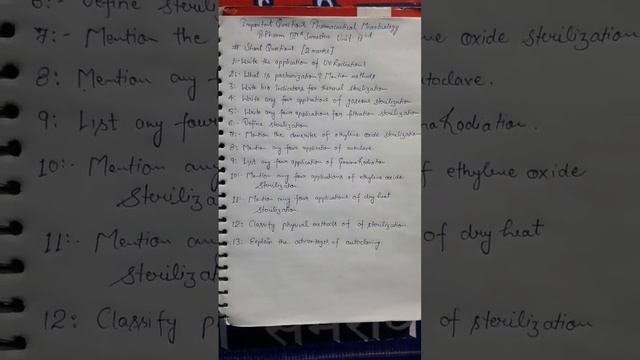 Important Questions Pharmaceutical Microbiology
B Pharm IIIrd Semester Unit IInd
# Short Questions [2 marks]
1:- Write the application of UV Radiations
2:- What is pasteurization? Mention methods
3:- Write bio indicators for thermal sterilization
4:- Write any four applications of gaseous sterilization
5:- Write any four applications for filtration sterilization
6:- Define sterilization
7:- Mention the demerites of ethylene oxide sterilization
8:- Mention any four application of autoclave.
9:- List any four application of Gamma Radiation
10:- Mention any four applications of ethylene oxide
sterilization
11:- Mention any four applications of dry heat
sterilization
12:- Classify physical methods of of sterilization
13:- Explain the advantages of autoclaving
6:- Define steril
7:- Mention the
8: Mention any
9: List any four
10:- Mention an
Steriliza
11:- Mention an
steriliza
12: Classify p
ene oxide sterilization
autoclave.
Radiation.
f ethylene oxide
of dry heat
of sterilization